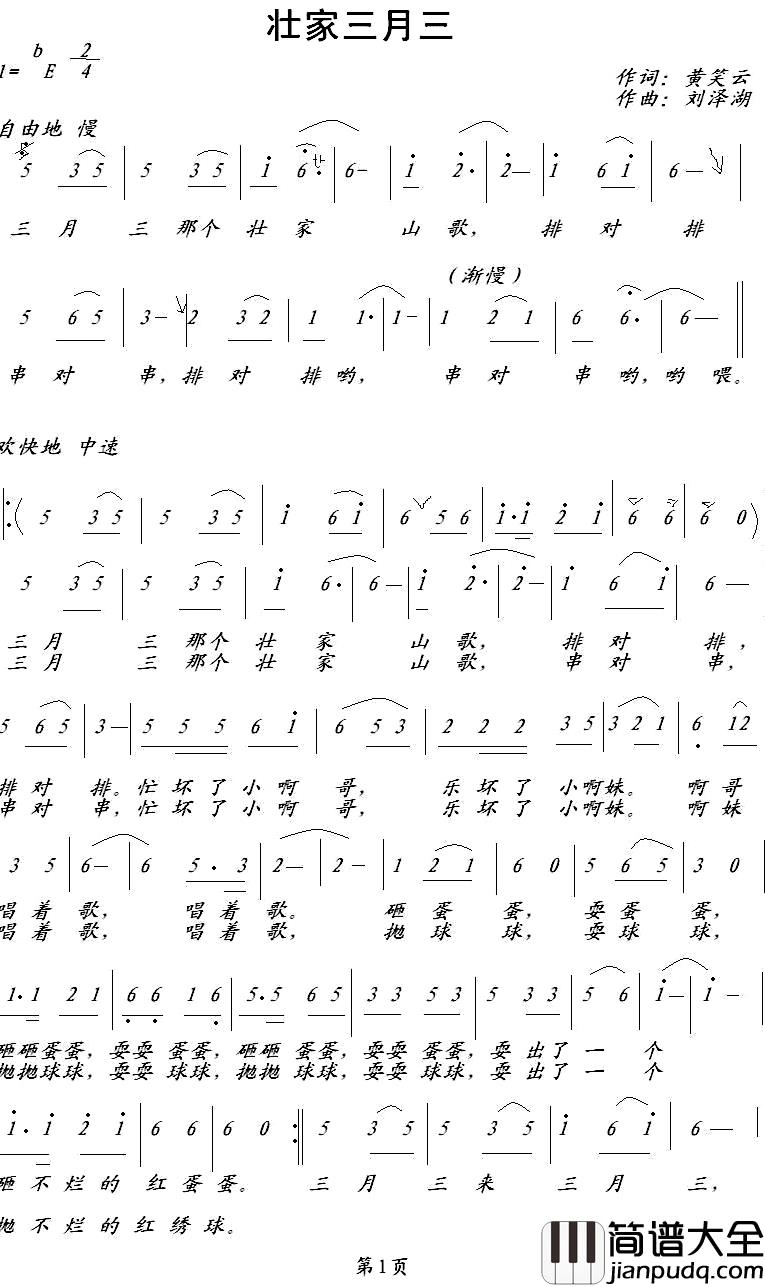 壮家三月三
1= bE 2/4
作词：黄笑云
作曲：刘泽湖
自由地 慢
5 3 5 | 5 3 5 | i 6· | 6- | i 2· | 2- | i 6 i | 6 - |
三 月 三 那个 壮 家 山 歌， 排 对 排
（渐慢）
5 6 5 | 3- | 2 3 2 | 1 1· | 1- | 1 2 1 | 6 6· | 6- ||
串 对 串，排 对 排 哟， 串 对 串 哟，哟 喂。
欢快地 中速
|: ( 5 3 5 | 5 3 5 | i 6 i | 6 5 6 | i·i 2 i | 6 6 | 6 0 )
5 3 5 | 5 3 5 | i 6· | 6 — | i 2· | 2- | i 6 i | 6 —
三 月 三 那个 壮 家 山 歌， 排 对 排，
三 月 三 那个 壮 家 山 歌， 串 对 串，
5 6 5 | 3— | 5 5 5 6 i | 6 5 3 | 2 2 2 3 5 | 3 2 1 | 6 12
排 对 排。忙 坏 了 小 啊 哥， 乐 坏 了 小啊妹。 啊哥
串 对 串，忙 坏 了 小 啊 哥， 乐 坏 了 小啊妹。 啊妹
3 5 | 6— | 6 5·3 | 2— | 2— | 1 2 1 | 6 0 | 5 6 5 | 3 0
唱 着 歌， 唱 着 歌。 砸 蛋 蛋， 耍 蛋 蛋，
唱 着 歌， 唱 着 歌， 抛 球 球， 耍 球 球，
1·1 2 1 | 6 6 1 6 | 5·5 6 5 | 3 3 5 3 | 5 3 3 | 5 6 | i— | i—
砸砸蛋蛋，耍耍 蛋蛋，砸砸 蛋蛋，耍耍 蛋蛋，耍 出了 一 个
抛抛球球，耍耍 球球，抛抛 球球，耍耍 球球，耍 出了 一 个
i·i 2 i | 6 6 | 6 0 :|| 5 3 5 | 5 3 5 | i 6 i | 6—
砸 不 烂 的 红 蛋 蛋。 三 月 三 来 三 月 三，
抛 不 烂 的 红 绣 球。
第1页
简谱大全
jianpudq.com